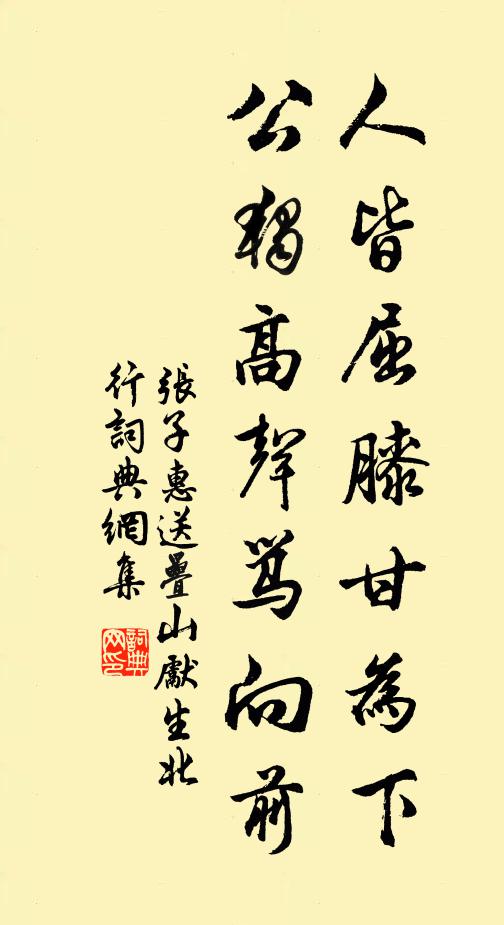 人皆屈膝甘為下
公獨高聲罵向前
張子惠送疊山獻生北
行詞典網集
詞典網印